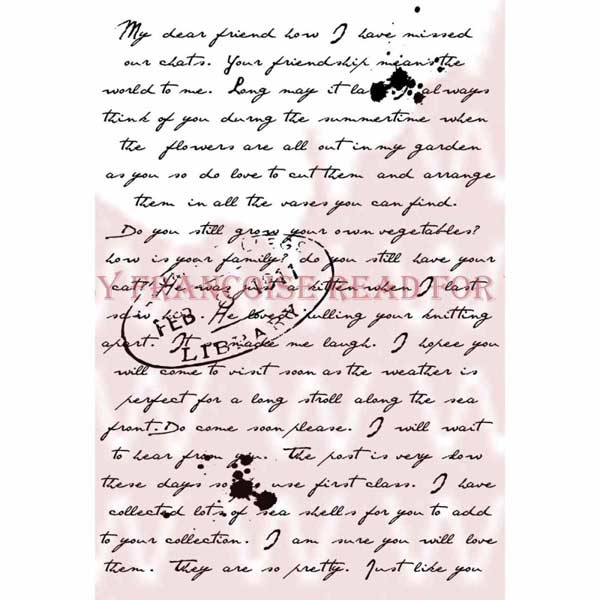 My dear friend how I have missed
our chats. Your friendship means the
world to me. Long may it la always
think of you durng the summertime when
the flowers are all out in my garden
as you so do love to cut them and arrange
them in all the vases you can find.
Do you still grow your own vegetables?
how is your family? do you still have your
cat? He was just a kitten when I last
Y FRANCOISE READ FOR
saw him. He loved pulling your knitting
FEB
apart. It made me laugh. I hopee you
LIBRARY
will come to visit soon as the weather is
perfect for a long stroll along the sea
front. Do come soon please. I will wait
to hear from you. The post is very slow
these days so use first class. I have
collected lots of sea shells for you to add
to your collection. I am sure you will love
them. They are so pretty. Just like you